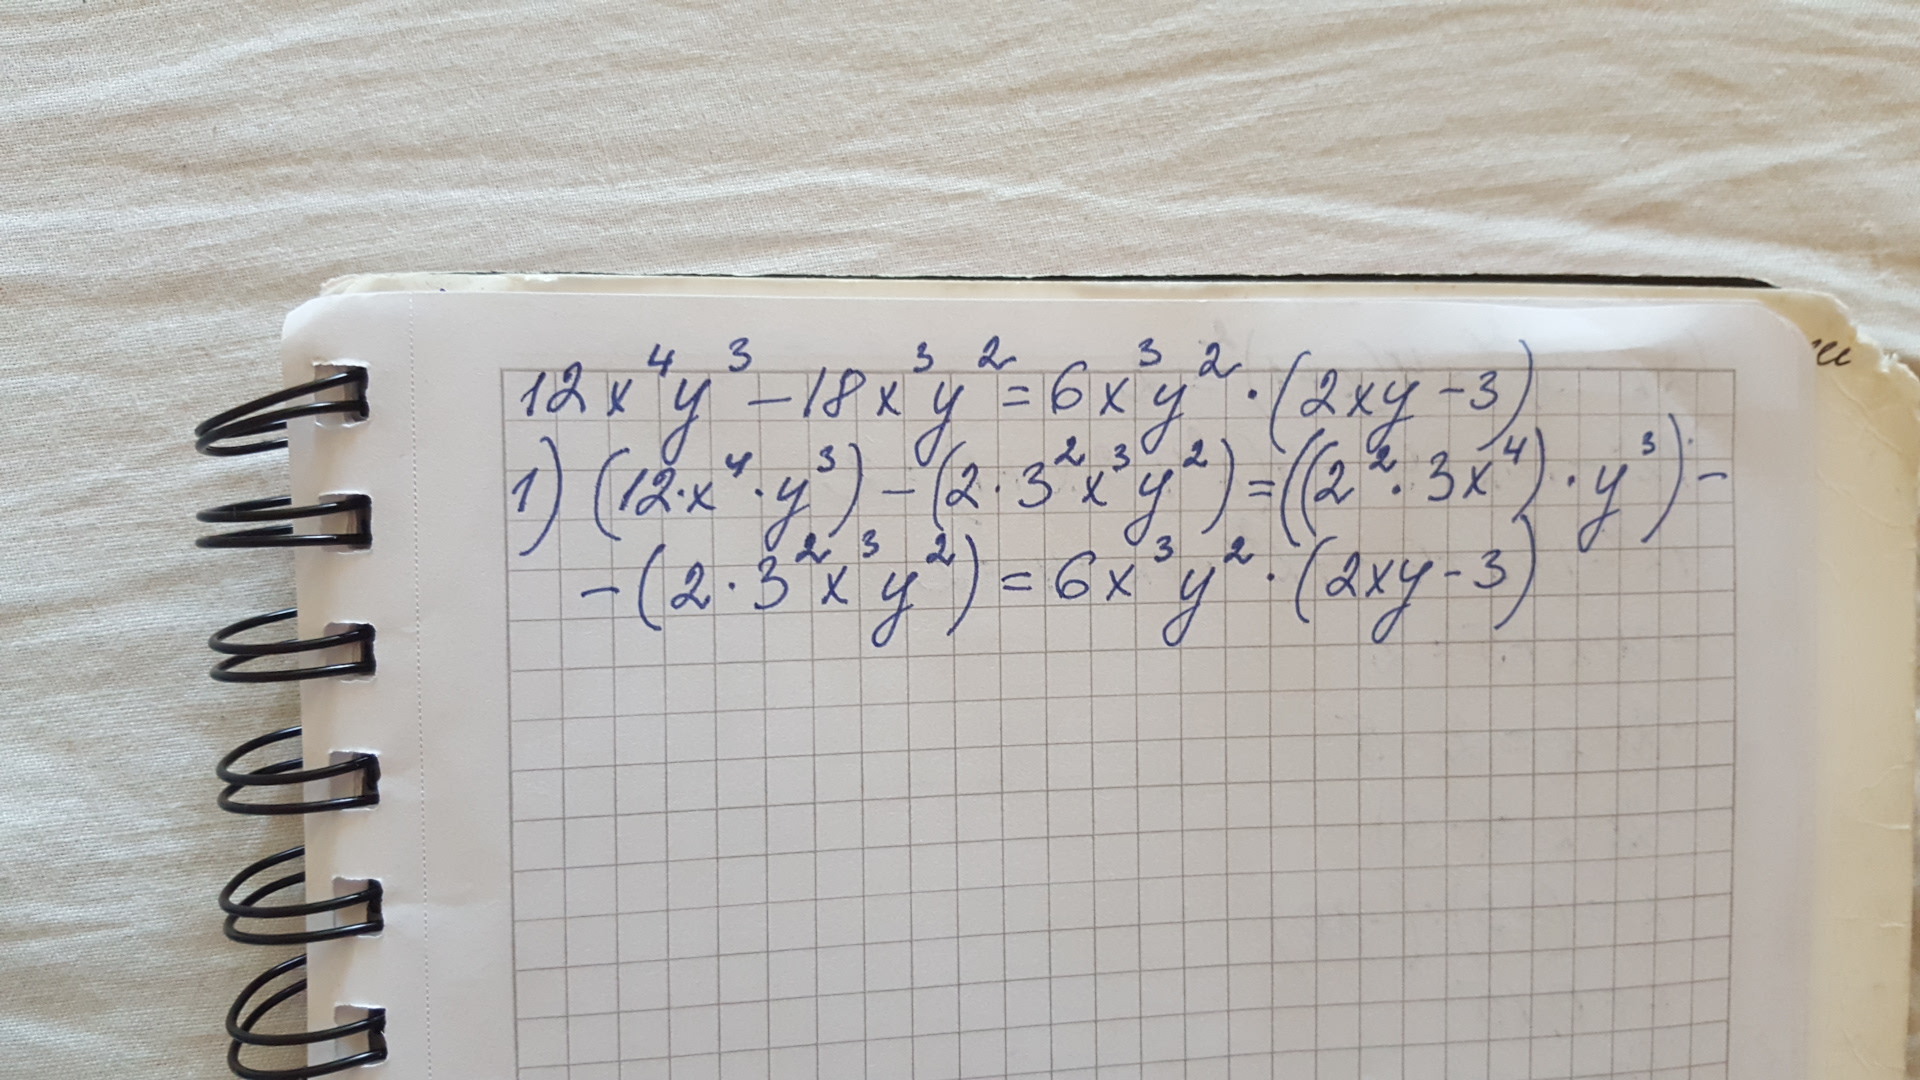 12x⁴y³ - 18x³y² = 6x³y² · (2xy - 3)
1) (12·x⁴·y³) - (2·3²x³y²) = ((2²·3x⁴)·y³) -
- (2·3²x³y²) = 6x³y² · (2xy - 3)